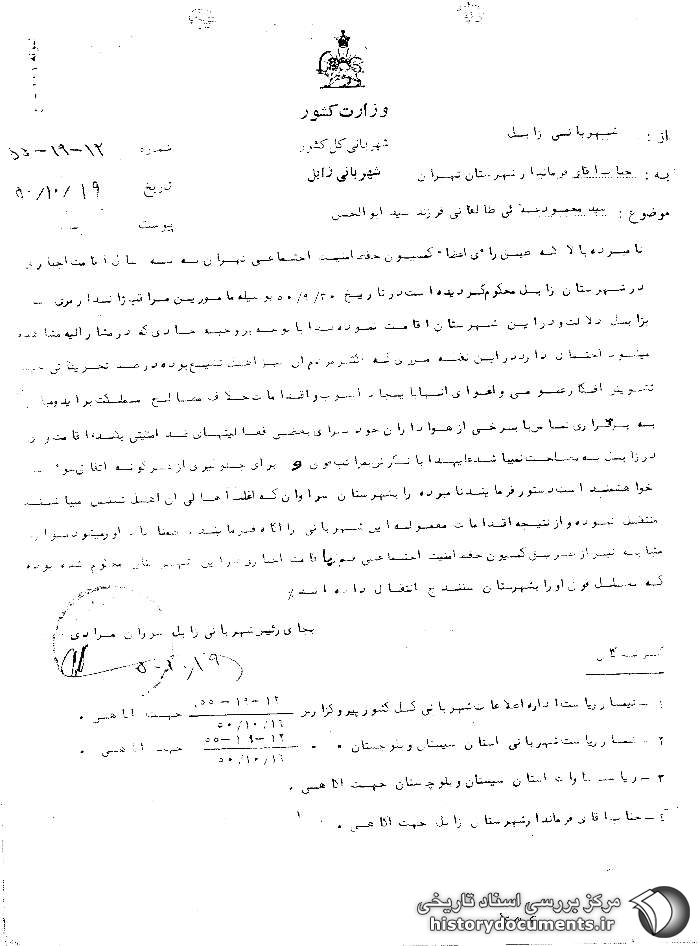 وزارت کشور
شهربانی کل کشور
شهربانی زابل
از : شهربانی زابل
به : جناب آقای فرماندار شهرستان تهران
موضوع : سید محمود طالقانی فرزند سید ابوالحسن
شماره ۱۲-۱۹-۵۵
تاریخ ۵۰/۱۰/۱۹
پیوست
نامبرده بالا که طبق رای اعضاء کمسیون حفظ امنیت اجتماعی تهران به سه سال اقامت اجباری
در شهرستان زابل محکوم گردیده است در تاریخ ۵۰/۹/۳۰ بوسیله مامورین مراقب ژاندارمری
بزابل دلالت و در این شهرستان اقامت نموده با توجه بروحیه خاصی که در مشارالیه مشاهده
میشود احتمال دارد در این نقطه مرزی که اکثر مردم آن اهل تشیع بوده در صدد تحریکاتی جهت
تشویش افکار عمومی و اغوای آنها با ایجاد آشوب و اقدامات خلاف مصالح مملکت برآید و
به برقراری تماس با برخی از هواداران خود برای بعضی فعالیتهای ضد امنیتی اقامت وی
در زابل به مصلحت نمیباشد و برای جلوگیری از هر گونه اتفاق سوء
خواهشمند است دستور فرمایند نامبرده را بشهرستان سراوان که اغلب اهالی آن اهل تسنن میباشند
منتقل نموده و از نتیجه اقدامات معموله این شهربانی را آگاه فرمایند
مشابه نیز از طریق کمسیون حفظ امنیت اجتماعی قم باقامت اجباری در این شهرستان محکوم شده بوده
که بعلل فوق او را بشهرستان سنندج انتقال داده است/
بجای رئیس شهربانی زابل سروان مرادی
۵۰/۱۰/۱۹
گیرندگان
۱ - تیمسار ریاست اداره اطلاعات شهربانی کل کشور پیرو گزارش ۱۲-۱۰-۵۵ ۵۰/۱۰/۱۶ جهت آگاهی .
۲ - تیمسار ریاست شهربانی استان سیستان و بلوچستان " " ۱۲-۱۹-۵۵ ۵۰/۱۰/۱۶ جهت آگاهی .
۳ - ریاست ساواک استان سیستان و بلوچستان جهت آگاهی .
۴ - جناب آقای فرماندار شهرستان زابل جهت آگاهی .
مرکز بررسی اسناد تاریخی
historydocuments.ir